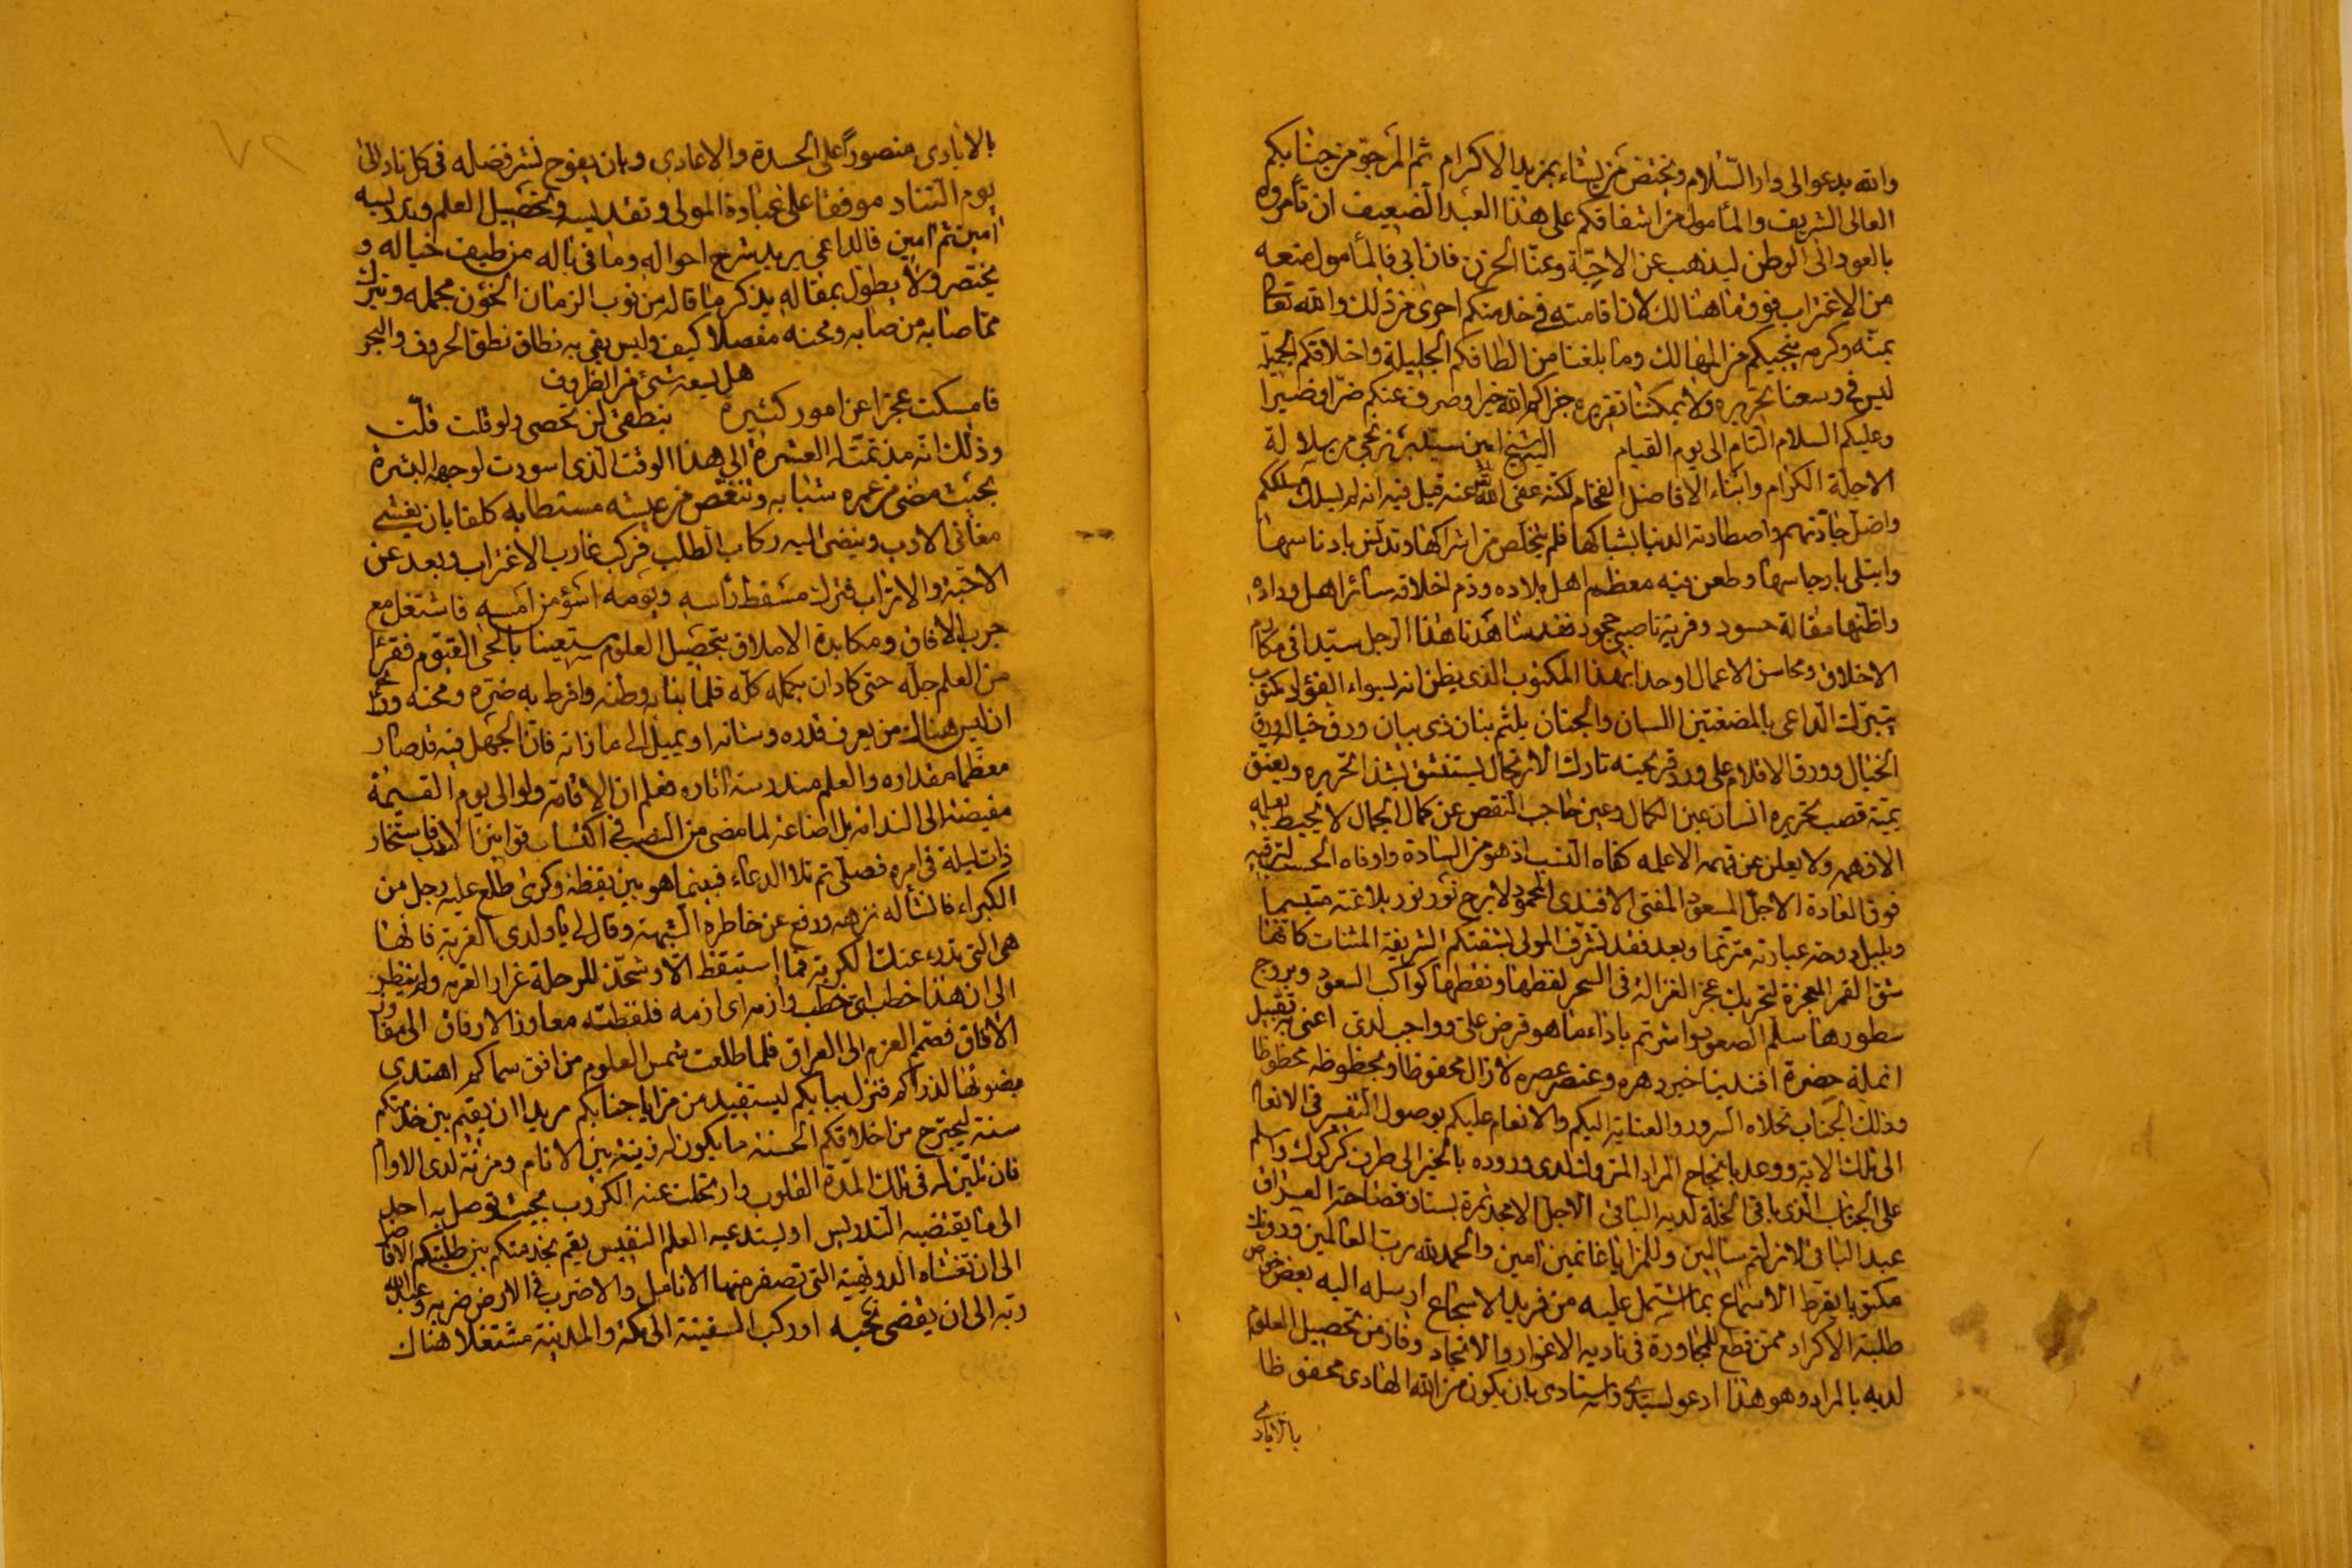 والله يدعو الى دار السلام ويختص من يشاء بمزيد الاكرام ثم المرجو من جنابكم
العالى الشريف والمأمول من اشفاقكم على هذا العبد الضعيف ان تأمروه
بالعود الى الوطن ليذهب عن الاحبة وعنا الحزن فان ابى فالمأمول منعه
من الاغتراب فوق ما هنالك لان اقامته فى خدمتكم احرى من ذلك والله تعالى
بمنه وكرمه ينجيكم من المهالك وما بلغنا من الطافكم الجليلة واخلاقكم الجميلة
ليس فى وسعنا تحريره ولا يمكننا تقريره جزاكم الله خيرا وصرف عنكم ضرا وضيرا
وعليكم السلام التام الى يوم القيام الشيخ امين سلالة
الاجلة الكرام وابناء الافاضل الفخام لكنه عفى الله عنه قيل فيه انه لم يسلك مسلكهم
واضل جادتهم واصطادته الدنيا بشباكها فلم يتخلص من اشراكها وتدنس بادناسها
وابتلى بارجاسها وطعن فيه معظم اهل بلاده وذم اخلاقه سائر اهل وداده
واظنها مقالة حسود وفرية ناصبى جحود فقد شاهدنا هذا الرجل سيدا فى مكارم
الاخلاق ومحاسن الاعمال بهذا المكتوب الذى يظن انه
الداعى بالمضغتين اللسان والجنان بلثم بنان ذى بيان ورق خيال
الخيال وورق الاقلام على ورد قريحته تارك الارتجال ليستنشق شذا تحريره
قصب تحريره انسان عين الكمال وعين حاجب النقص عن كمال الجمال لا يحيط بعلمه
الافهم ولا يعلن عن فهمه الا علمه كفاه النسب اذ هو من السادة واوفاه الحسب
فوق العادة الاجل المسعود المفتى الافندى المحمود لا برح نور نور بلاغته متبسما
وبلبل دوحة عبارته مترنما وبعد فقد تشرف المولى بشقتكم الشريفة كانها
شق القمر المعجزة عجز الغزالة فى السحر لفظها ونقطها كواكب السعود وبروج
سطورها سلم الصعود باداء ما هو فرض على وواجب لدى اعنى به تقبيل
انملة حضرة افندينا خير دهره وعنصر عصره لا زال محفوظا وبحظوظه محظوظا
وذلك الجناب تحلاه السرور والعناية اليكم والانعام عليكم بوصول
الى تلك الاية ووعد بانجاح المراد لدى وروده بالخير الى طرف كركوك وسلم
على الجناب الذى باقى الخلة لديه الباقى الاجل الامجد ثمرة بستان فصاحة العراق
عبد الباقى لا زلتم سالمين وللمزايا غانمين امين والحمد لله رب العالمين ودونك
مكتوبا يقرط الاسماع بما اشتمل عليه من فريد الاسجاع ارسله اليه بعض
طلبة الاكراد ممن قطع للمجاورة فى ناديه الاغوار والانجاد وفاز من تحصيل العلوم
لديه بالمراد وهو هذا ادعو لسيدى واستادى بان يكون من الله الهادى محفوظا
بالايادى
بالايادى منصورا على الحسدة والاعادى وبان يفوح نشر فضله فى كل ناد الى
يوم التناد موفقا على عبادة المولى وتقديسه وتحصيل العلم وتدريسه
امين ثم امين فالداعى يريد شرح احواله وما فى باله من طيف خياله و
يختصر ولا يطول بمقاله يذكر ما قاله من نوب الزمان الخؤن مجمله ويترك
مما صابه من صابه ومحنه مفصلا كيف وليس يفى به نطاق نطق الحروف والبحر
هل يسعه شئ من الظروف
فامسكت عجزا عن امور كثيرة بنطقى لن تحصى ولو قلت قلت
وذلك انه مذ تمت له العشرة الى هذا الوقت الذى اسودت لوجهه البشرة
بحيث مضى من عمره شبابه وتنغص من عيشه مستطابه كلفا بان
مغانى الادب وينضى اليه ركاب الطلب فركب غارب الاغتراب وبعد عن
الاحبة والاتراب فترك مسقط رأسه ويومه اسوء من امسه فاشتغل مع
جوب الافاق ومكابدة الاملاق بتحصيل العلوم مستعينا بالحى القيوم فقرأ
من العلم جله حتى كاد ان يكمله كله فلما نبا به وطنه وافرط به ضره ومحنه ورأى
ان ليس هناك من يعرف قدره وشانه او يميل الى ما زانه فان الجهل فيه قد صار
معظما مقداره والعلم مندرسة اثاره فعلم ان الاقامة ولو الى يوم القيمة
مفيضة الى الندامة بل اضاعة لما مضى من النصب فى اكتساب قوانين الادب فاستخار
ذات ليلة فى امره فصلى ثم تلا الدعاء فبينما هو بين يقظة وكرى طلع عليه رجل من
الكبراء فالشأله نزهه ورفع عن خاطره الشبهة وقال لى يا ولدى الغربة فانها
هى التى تدرء عنك الكربة فما استيقظ الا وشحذ للرحلة غرار الغربة ولم ينظر
الى ان هذا خطب اى خطب وازمه اى ازمه فلفظته معاوز الارفاق الى مفاوز
الافاق فصمم العزم الى العراق فلما طلعت شمس العلوم من افق سماكم اهتدى
بضوئها لذراكم فنزل ببابكم ليستفيد من مزايا جنابكم مريدا ان يقيم بين خدمتكم
سنة من اخلاقكم الحسنة ما يكون له زينة بين الانام ومزية لدى
فان تليّن له فى تلك المدة القلوب وارتحلت عنه الكروب بحيث توصل به اجل
الى ما يقتضيه التدريس او يستدعيه العلم النفيس يقيم بخدمتكم بين طلبتكم الافاضل
الى ان تغشاه الدويهية التى تصفر منها الانامل والا ضرب فى الارض ضربه وعبد الله
ربه الى ان يقضى نحبه او ركب السفينة الى مكة والمدينة مشتغلا هناك